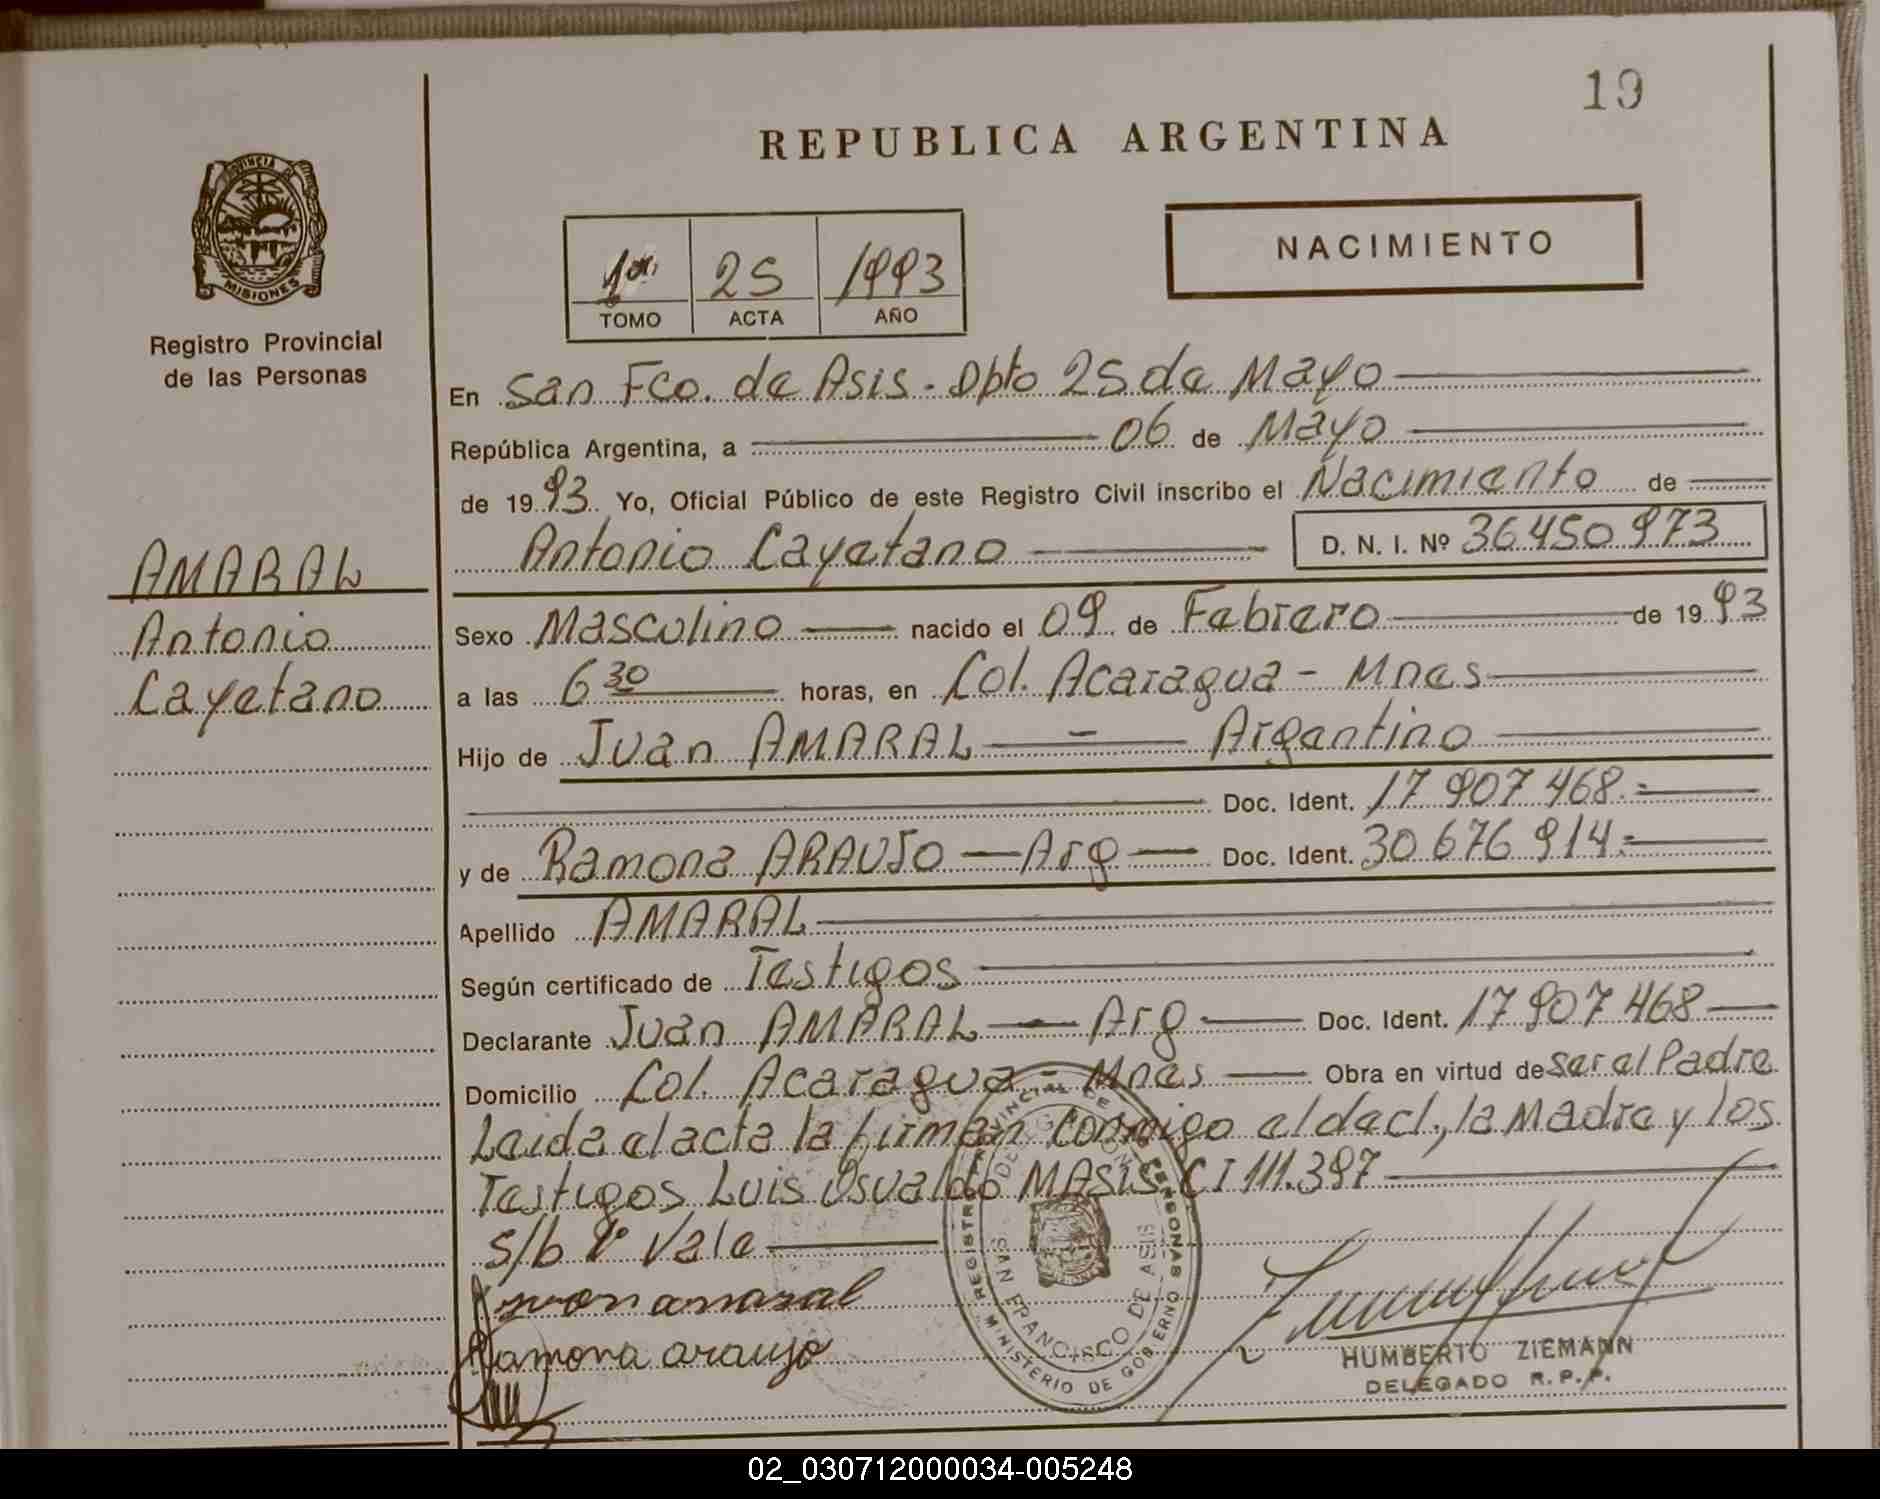 19
REPUBLICA ARGENTINA
PROVINCIA DE
MISIONES
Registro Provincial
de las Personas
NACIMIENTO
25 1993
TOMO ACTA AÑO
En San Fco. de Asis - Dpto 25 de Mayo
República Argentina, a 06 de Mayo
de 1993 Yo, Oficial Público de este Registro Civil inscribo el Nacimiento de
Antonio Cayetano D. N. I. Nº 36450973
AMARAL
Antonio
Cayetano
Sexo Masculino nacido el 09 de Febrero de 1993
a las 6 30 horas, en Col. Acaragua - Mnes
Hijo de Juan AMARAL - Argentino
Doc. Ident. 17 907 468.=
y de Ramona ARAUJO - Arg - Doc. Ident. 30 676 914=
Apellido AMARAL
Según certificado de Testigos
Declarante Juan AMARAL - Arg - Doc. Ident. 17 907 468
Domicilio Col. Acaragua - Mnes - Obra en virtud de ser el Padre
Leida el acta la firman conmigo el decl., la Madre y los
Testigos Luis Osvaldo MAsis CI 111.397
s/b Vale
juan amaral
Ramona araujo
REGISTRO PROVINCIAL DE LAS PERSONAS
MINISTERIO DE GOBIERNO
SAN FRANCISCO DE ASIS
HUMBERTO ZIEMANN
DELEGADO R.P.P.
02_030712000034-005248